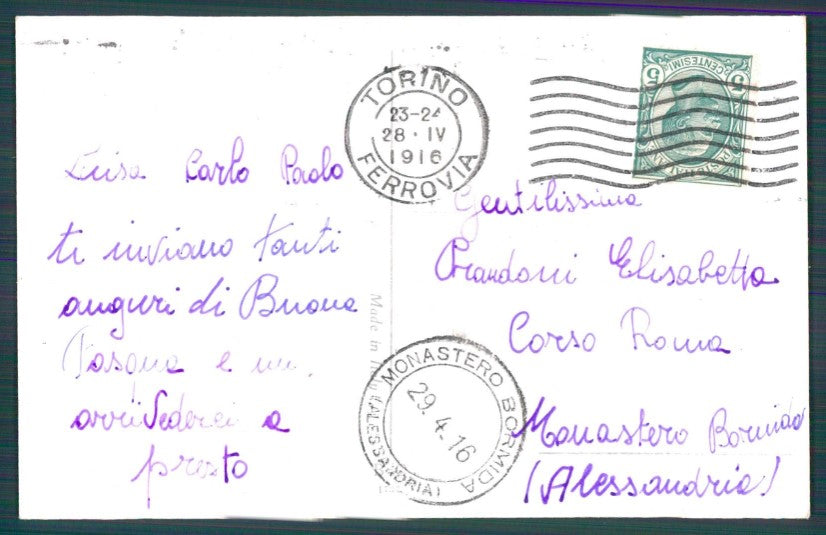 Luisa Carlo Paolo
ti inviano tanti
auguri di Buona
Pasqua e un
arrivederci a
presto
Made in Italy
TORINO
23-24
28·IV
1916
FERROVIA
5 CENTESIMI 5
Gentilissima
Elisabetta
Corso Roma
Monastero Bormida
(Alessandria)
MONASTERO BORMIDA
29.4.16
(ALESSANDRIA)